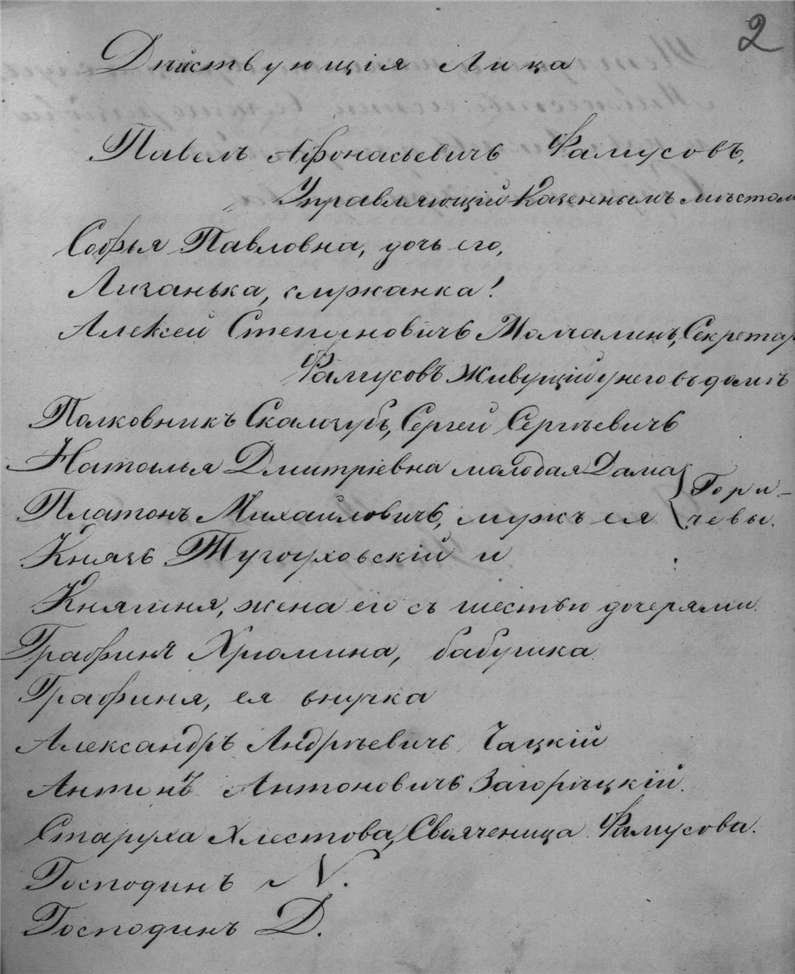 2
Дѣйствующія Лица
Павелъ Афонасьевичъ Фамусовъ,
Управляющій Казеннымъ мѣстом
Софья Павловна, дочь его,
Лизанька, служанка!
Алексей Степановичъ Молчалинъ, Секретар
Фамусовъ живущій у него въ домѣ
Полковникъ Скалозубъ, Сергей Сергѣевичъ
Наталья Дмитріевна молодая Дама } Гори-
Платонъ Михайловичъ, мужъ ея } чевы.
Князь Тугоуховскій и
Княгиня, жена его съ шестью дочерями.
Графиня Хрюмина, бабушка
Графиня, ея внучка
Александръ Андрѣевичъ Чацкій
Антонъ Антоновичъ Загорѣцкій.
Старуха Хлестова, Свяченица Фамусова.
Господинъ N.
Господинъ D.